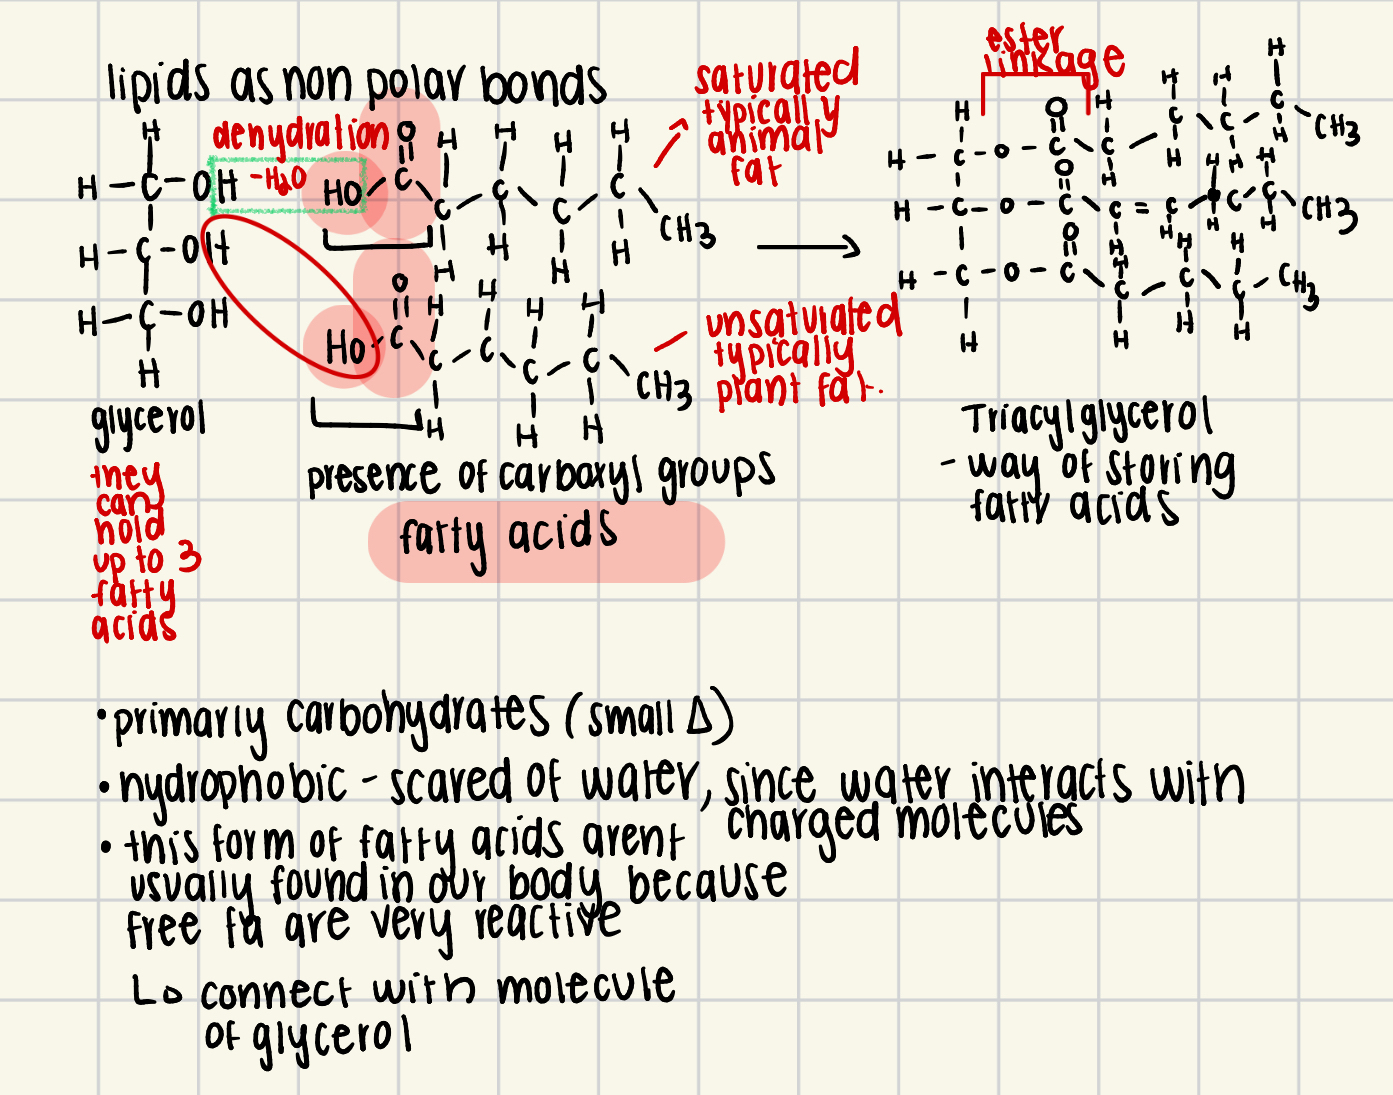 lipids as non polar bonds
dehydration
-H₂O
saturated
typically
animal
fat
ester
linkage
H O H H H H
H - C - OH HO C C C C C
CH3
H - C - OH H H H H
H - C - OH HO O C H H H H
C C C C
CH3
H H H H
unsaturated
typically
plant fat.
H O H H H H
H - C - O - C C C C C CH3
H - C - O - C C = C C C CH3
H - C - O - C C C C CH3
H H H H
glycerol
they
can
hold
up to 3
fatty
acids
presence of carboxyl groups
fatty acids
Triacylglycerol
- way of storing
fatty acids
• primarly carbohydrates (small Δ)
• hydrophobic - scared of water, since water interacts with
charged molecules
• this form of fatty acids arent
usually found in our body because
free fa are very reactive
↳ connect with molecule
of glycerol